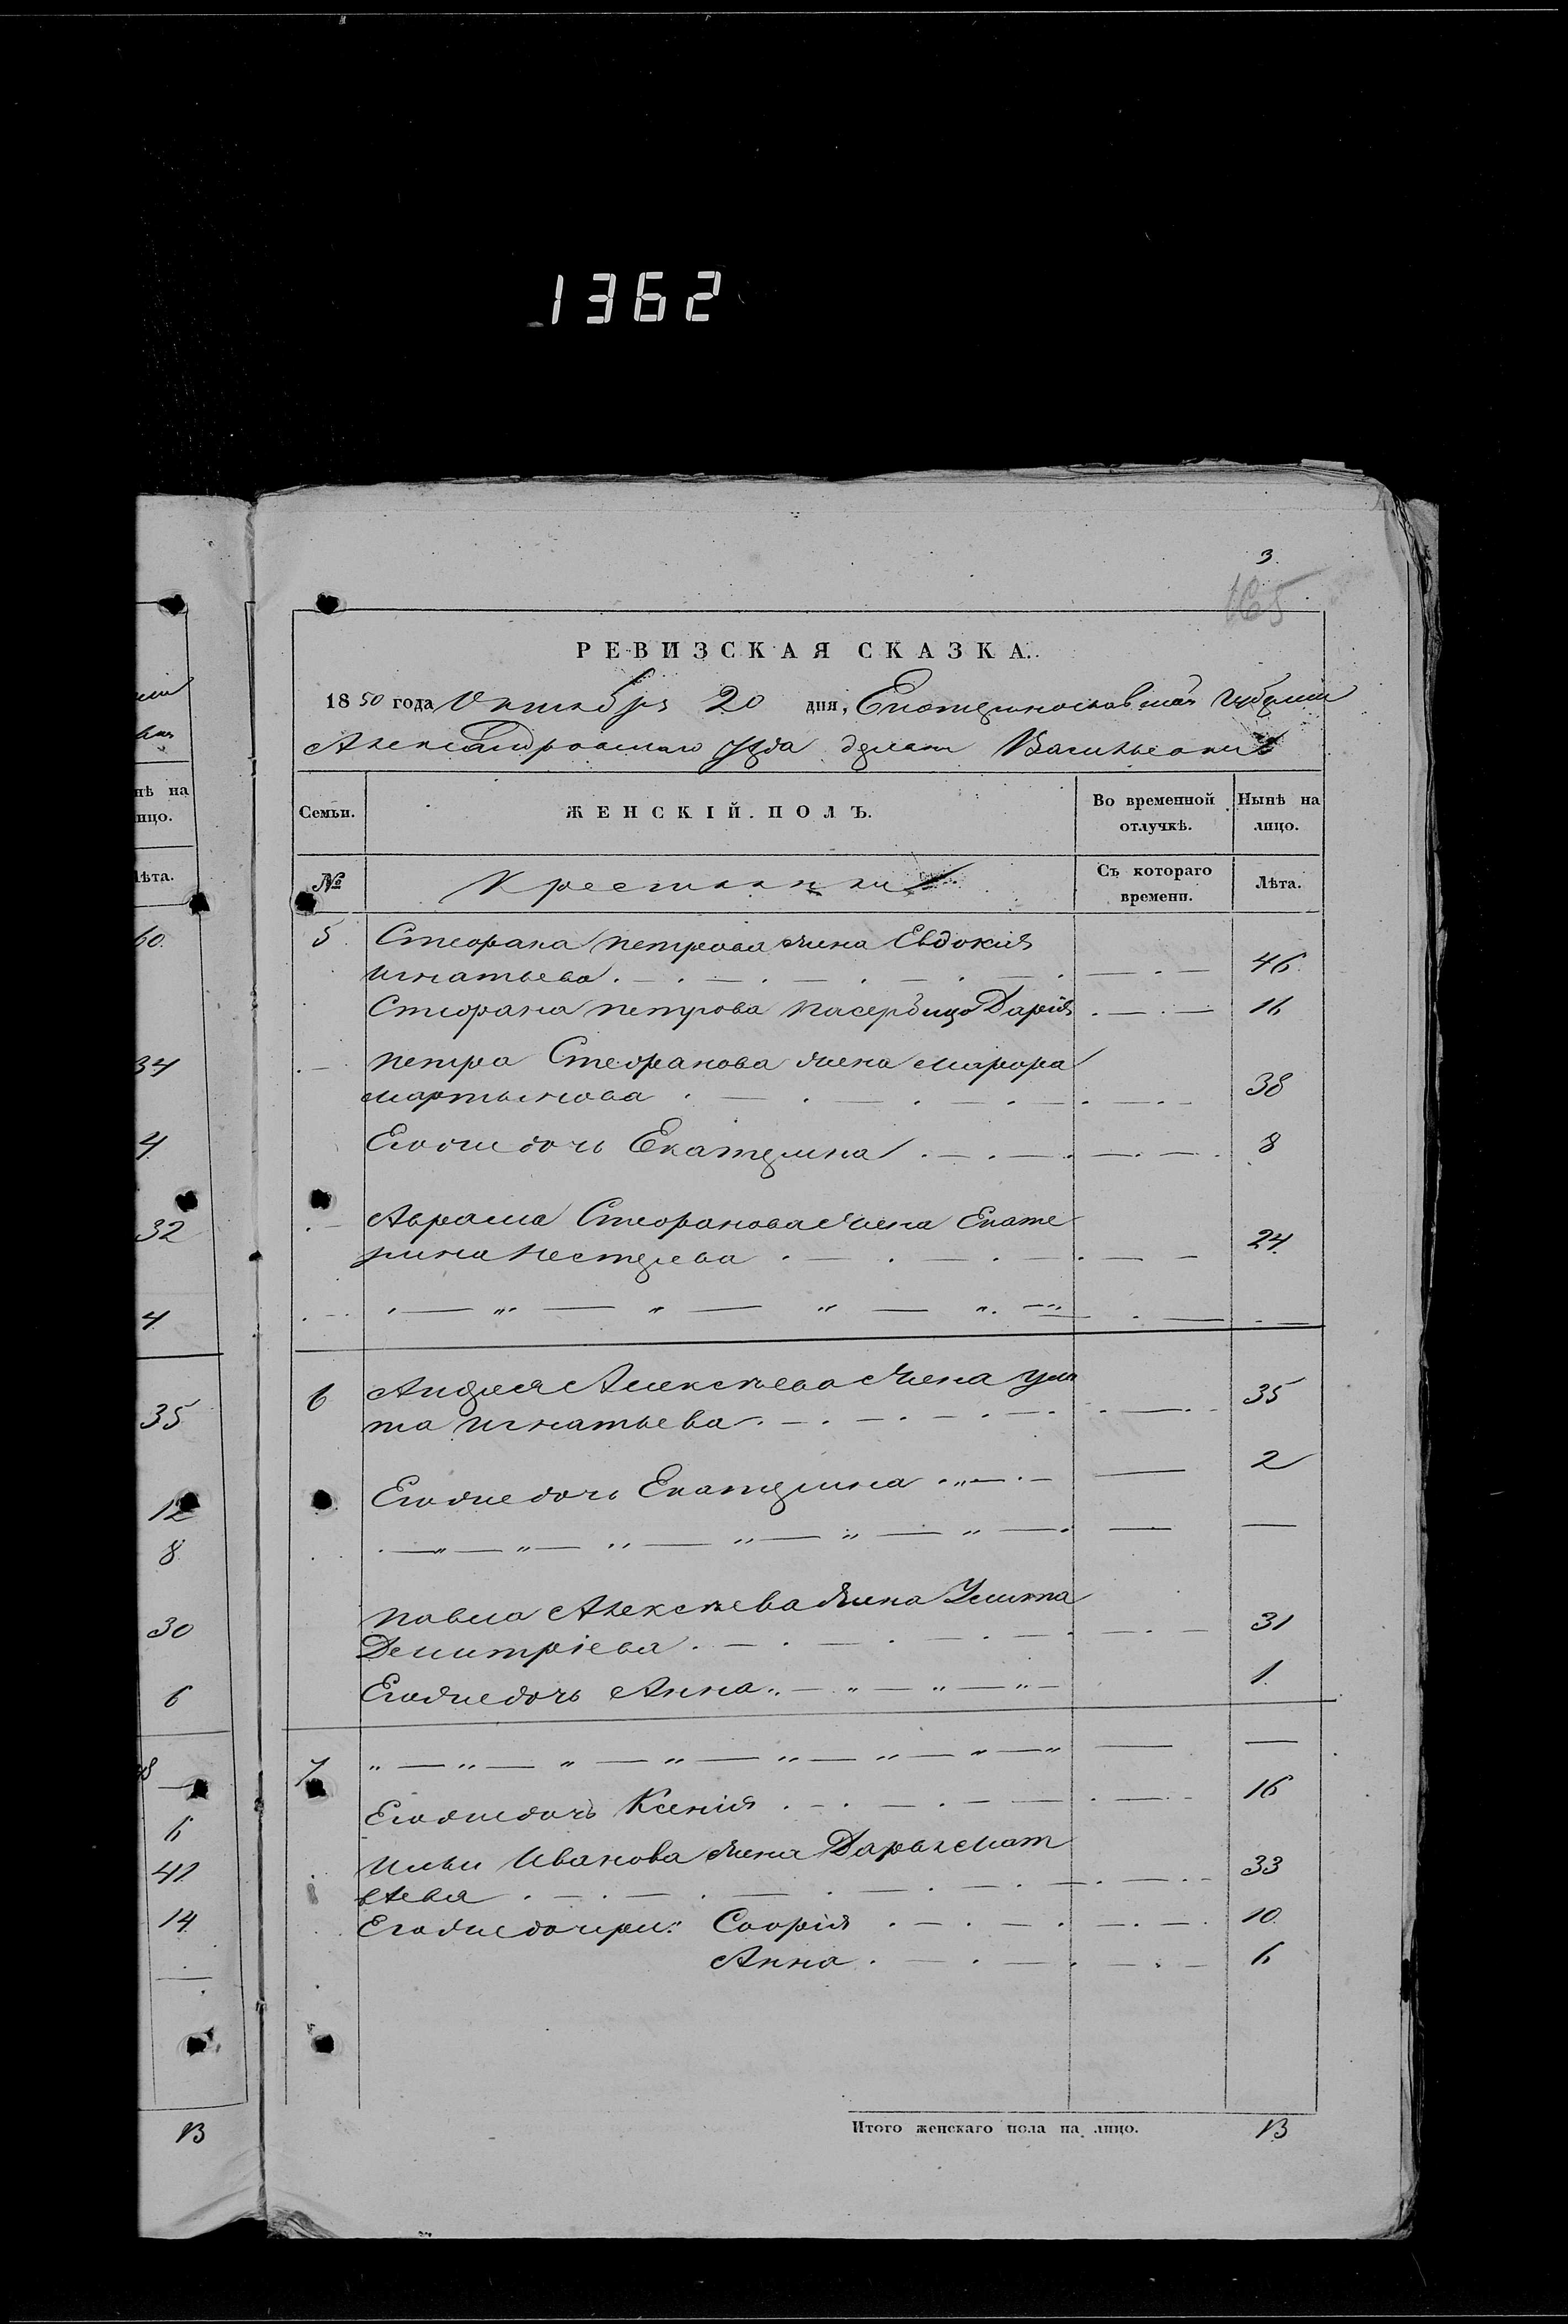 1362
нѣ на
ицо.
лѣта.
60.
34
4
32
4
35
12
8
30
6
6
41
14
13
3.
165
РЕВИЗСКАЯ СКАЗКА.
1850 года Октября 20 дня, Екатеринославской Губерніи
Александровскаго Уѣзда деревни Васильевки
Семьи. ЖЕНСКІЙ ПОЛЪ. Во временной отлучкѣ. Нынѣ на лицо.
№ Крестьянки Съ котораго времени. Лѣта.
5 Стефана Петрова жена Евдокия
Игнатьева 46
Стефана Петрова пасербица Дарія 16
Петра Стефанова жена Марфа
Мартынова 38
Егоже дочь Екатерина 8
Аврама Стефанова жена Екате
рина Нестерева 24
6 Андрея Алексѣева жена Ули
та Игнатьева 35
Егоже дочь Екатерина 2
Павла Алексѣева жена Улита
Демитріева 31
Егоже дочь Анна 1
7
Егоже дочь Ксенія 16
Ильи Иванова жена Дарья Мат
вѣева 33
Егоже дочери: Софія 10
Анна 6
Итого женскаго пола на лицо. 13